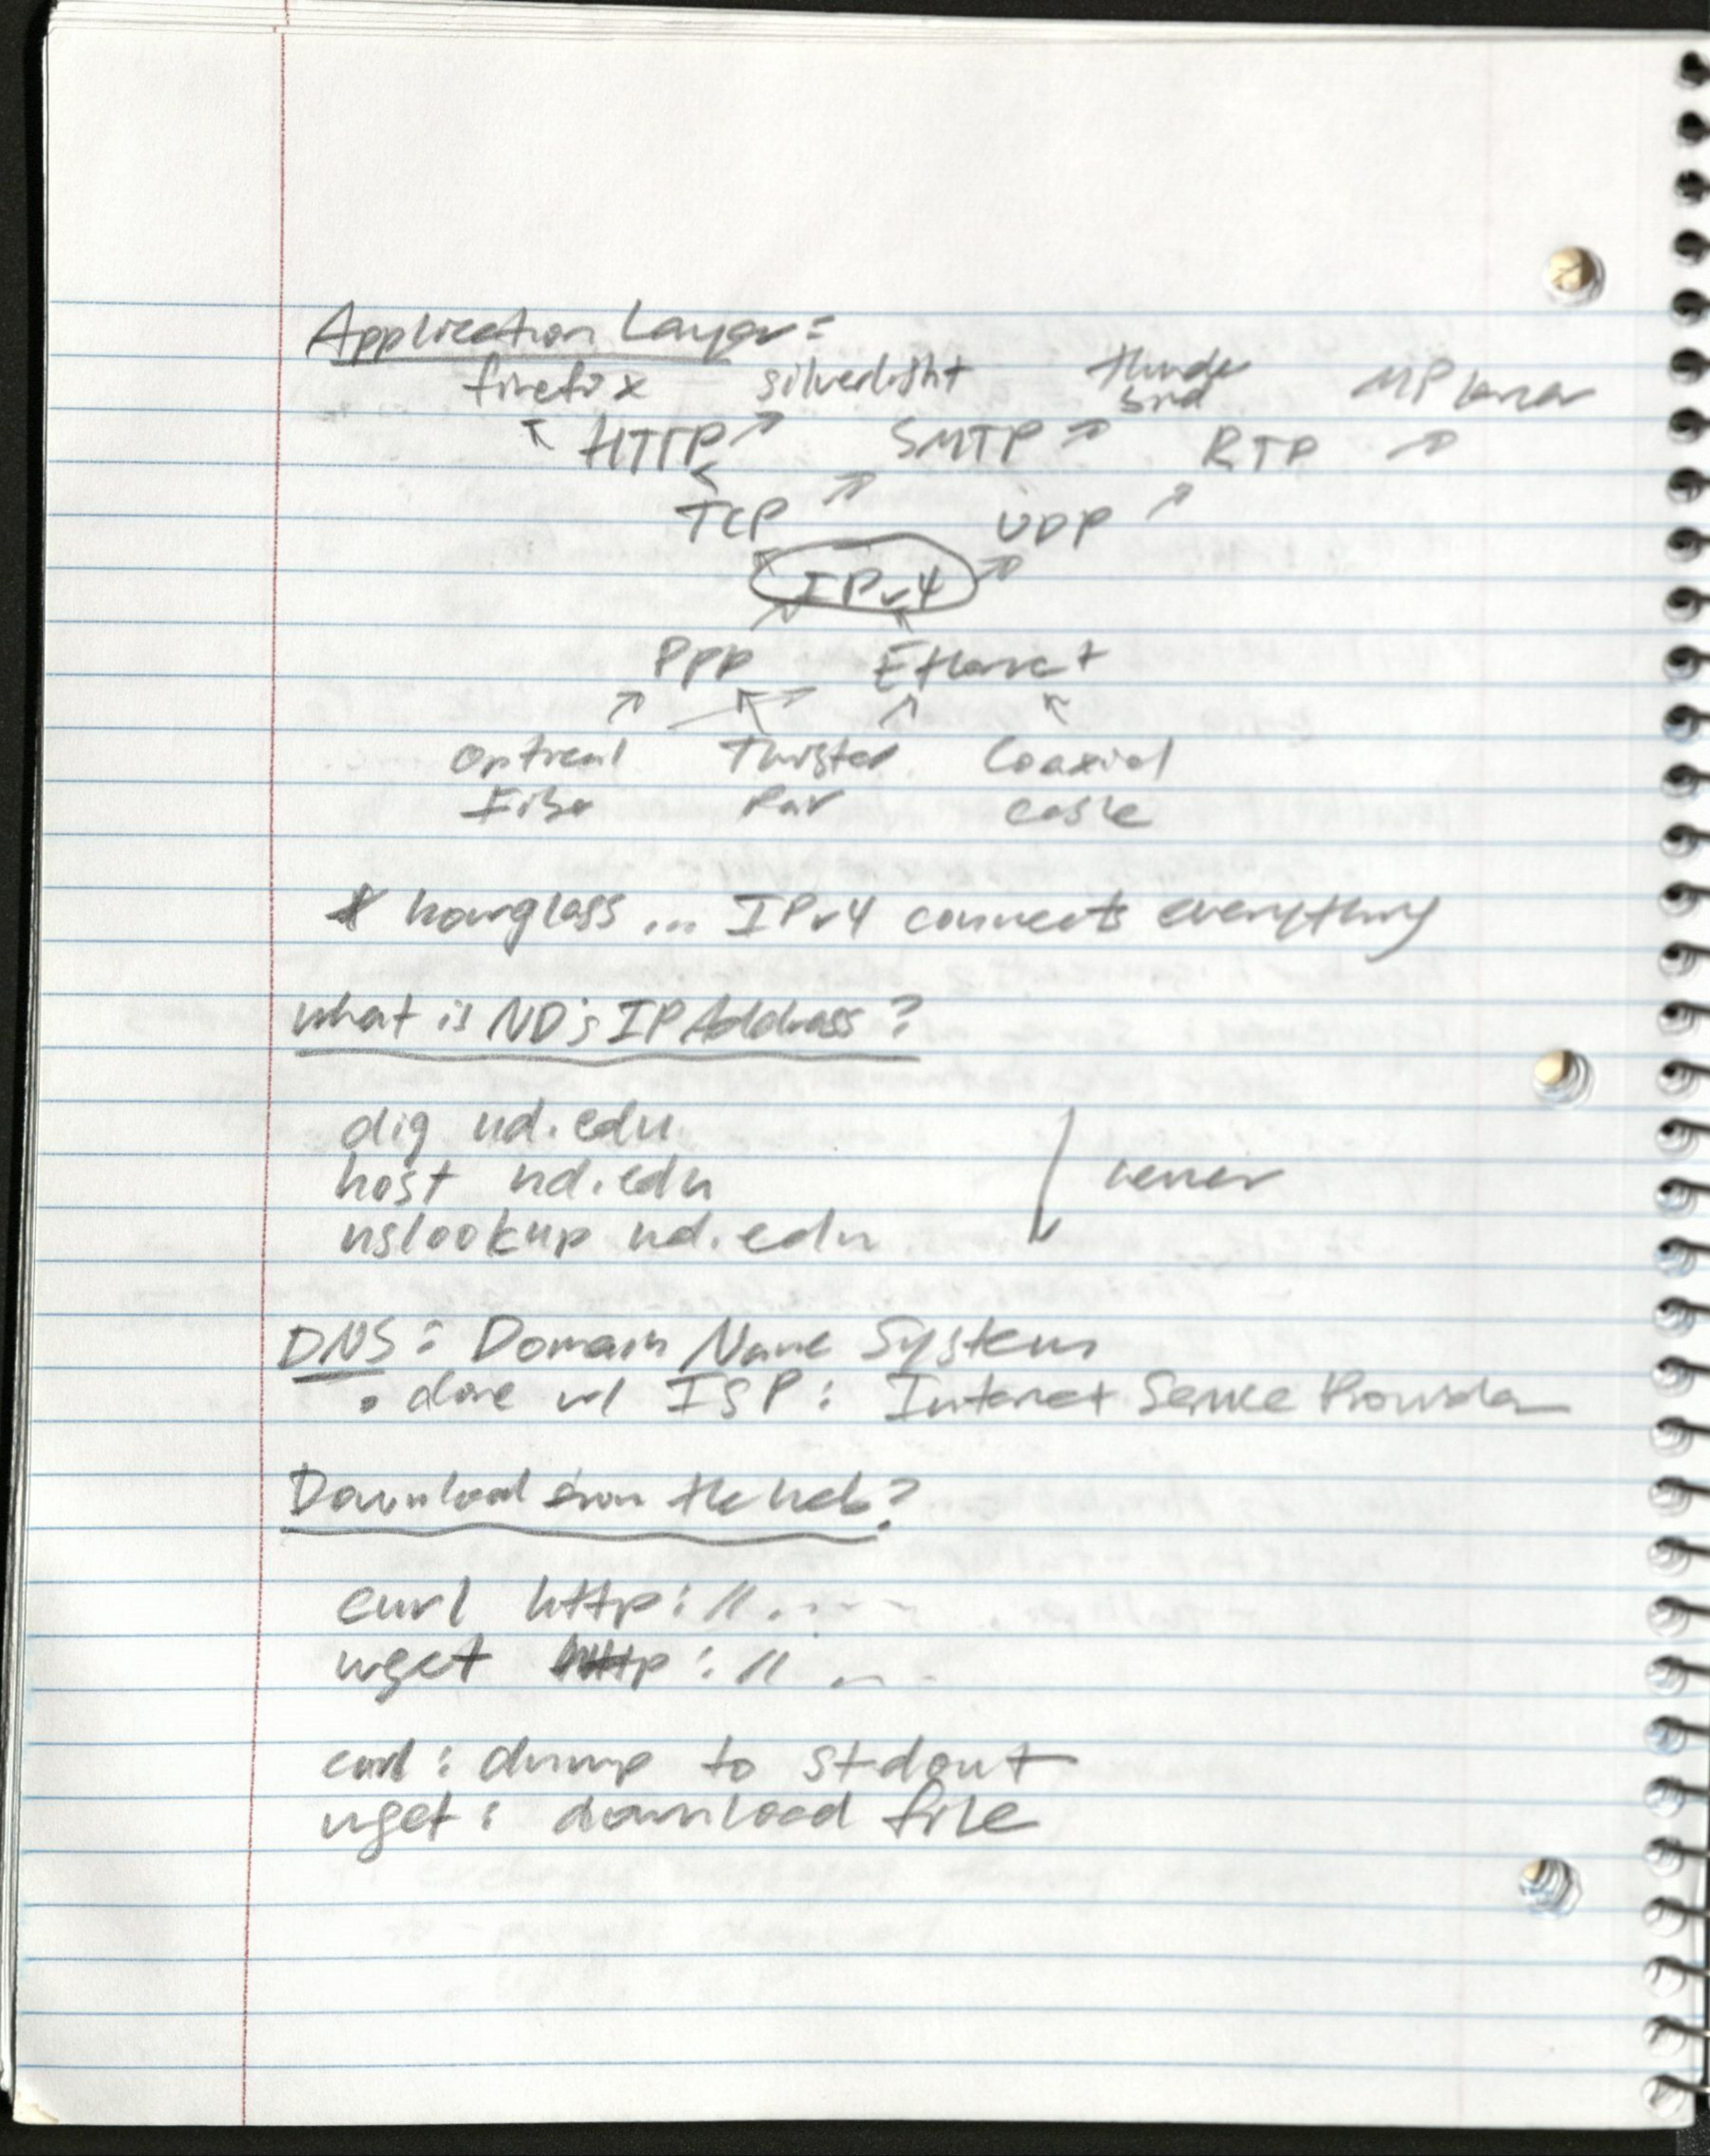 Application Layer:
firefox silverlight thunder MPlayer
bird
HTTP SMTP RTP
TCP UDP
IPv4
PPP Ethernet
Optical Twisted Coaxial
Fiber Pair Cable
* hourglass ... IPv4 connects everything
What is ND's IP Address?
dig nd.edu
host nd.edu
nslookup nd.edu
DNS: Domain Name System
• done w/ ISP: Internet Service Provider
Download from the web?
curl http://.....
wget http://...
curl: dump to stdout
wget: download file